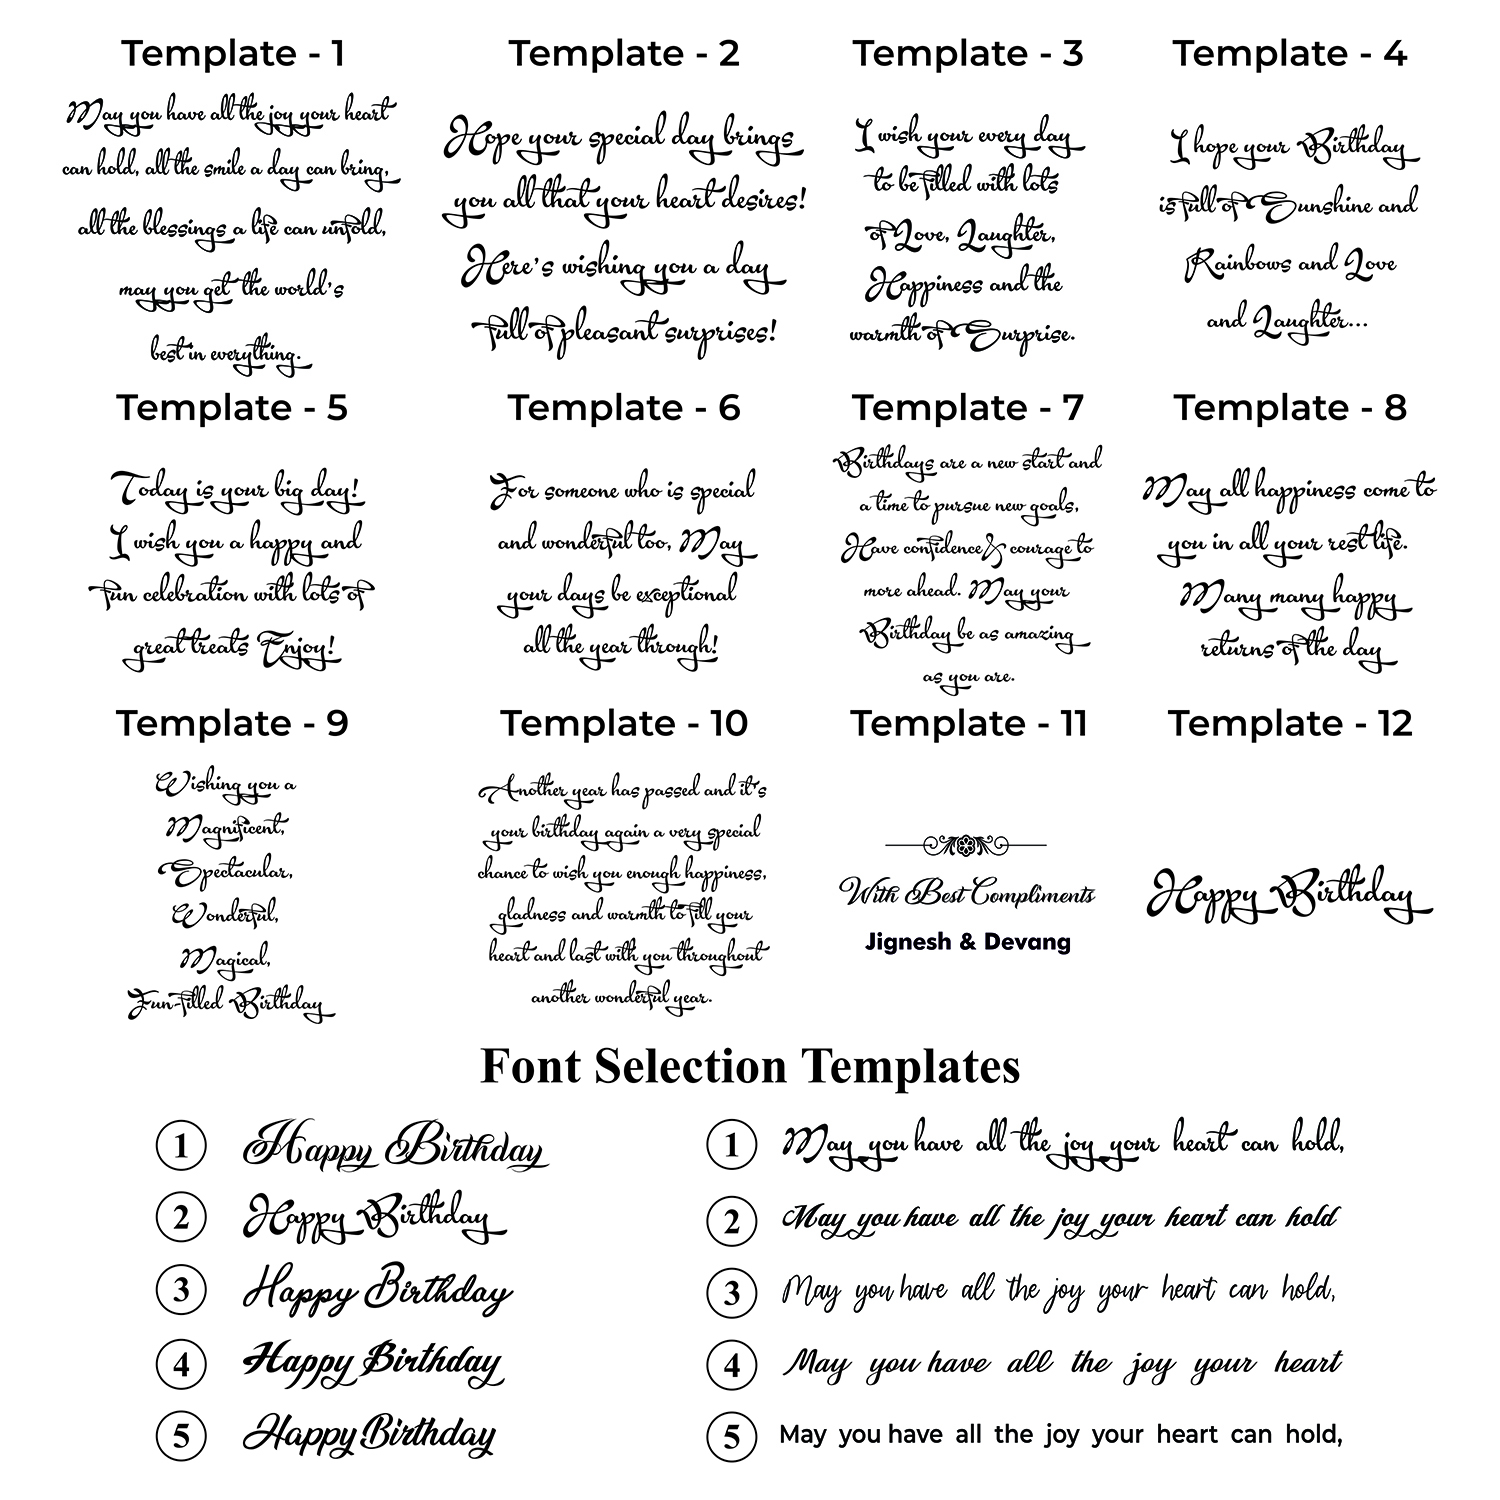 Template - 1
May you have all the joy your heart
can hold, all the smile a day can bring,
all the blessings a life can unfold,
may you get the world's
best in everything.
Template - 2
Hope your special day brings
you all that your heart desires!
Here's wishing you a day
full of pleasant surprises!
Template - 3
I wish your every day
to be filled with lots
of Love, Laughter,
Happiness and the
warmth of Surprise.
Template - 4
I hope your Birthday
is full of Sunshine and
Rainbows and Love
and Laughter...
Template - 5
Today is your big day!
I wish you a happy and
fun celebration with lots of
great treats Enjoy!
Template - 6
For someone who is special
and wonderful too, May
your days be exceptional
all the year through!
Template - 7
Birthdays are a new start and
a time to pursue new goals,
Have confidence & courage to
more ahead. May your
Birthday be as amazing
as you are.
Template - 8
May all happiness come to
you in all your rest life.
Many many happy
returns of the day
Template - 9
Wishing you a
Magnificent,
Spectacular,
Wonderful,
Magical,
Fun-filled Birthday
Template - 10
Another year has passed and it's
your birthday again a very special
chance to wish you enough happiness,
gladness and warmth to fill your
heart and last with you throughout
another wonderful year.
Template - 11
With Best Compliments
Jignesh & Devang
Template - 12
Happy Birthday
Font Selection Templates
1 Happy Birthday
2 Happy Birthday
3 Happy Birthday
4 Happy Birthday
5 Happy Birthday
1 May you have all the joy your heart can hold,
2 May you have all the joy your heart can hold
3 May you have all the joy your heart can hold,
4 May you have all the joy your heart
5 May you have all the joy your heart can hold,